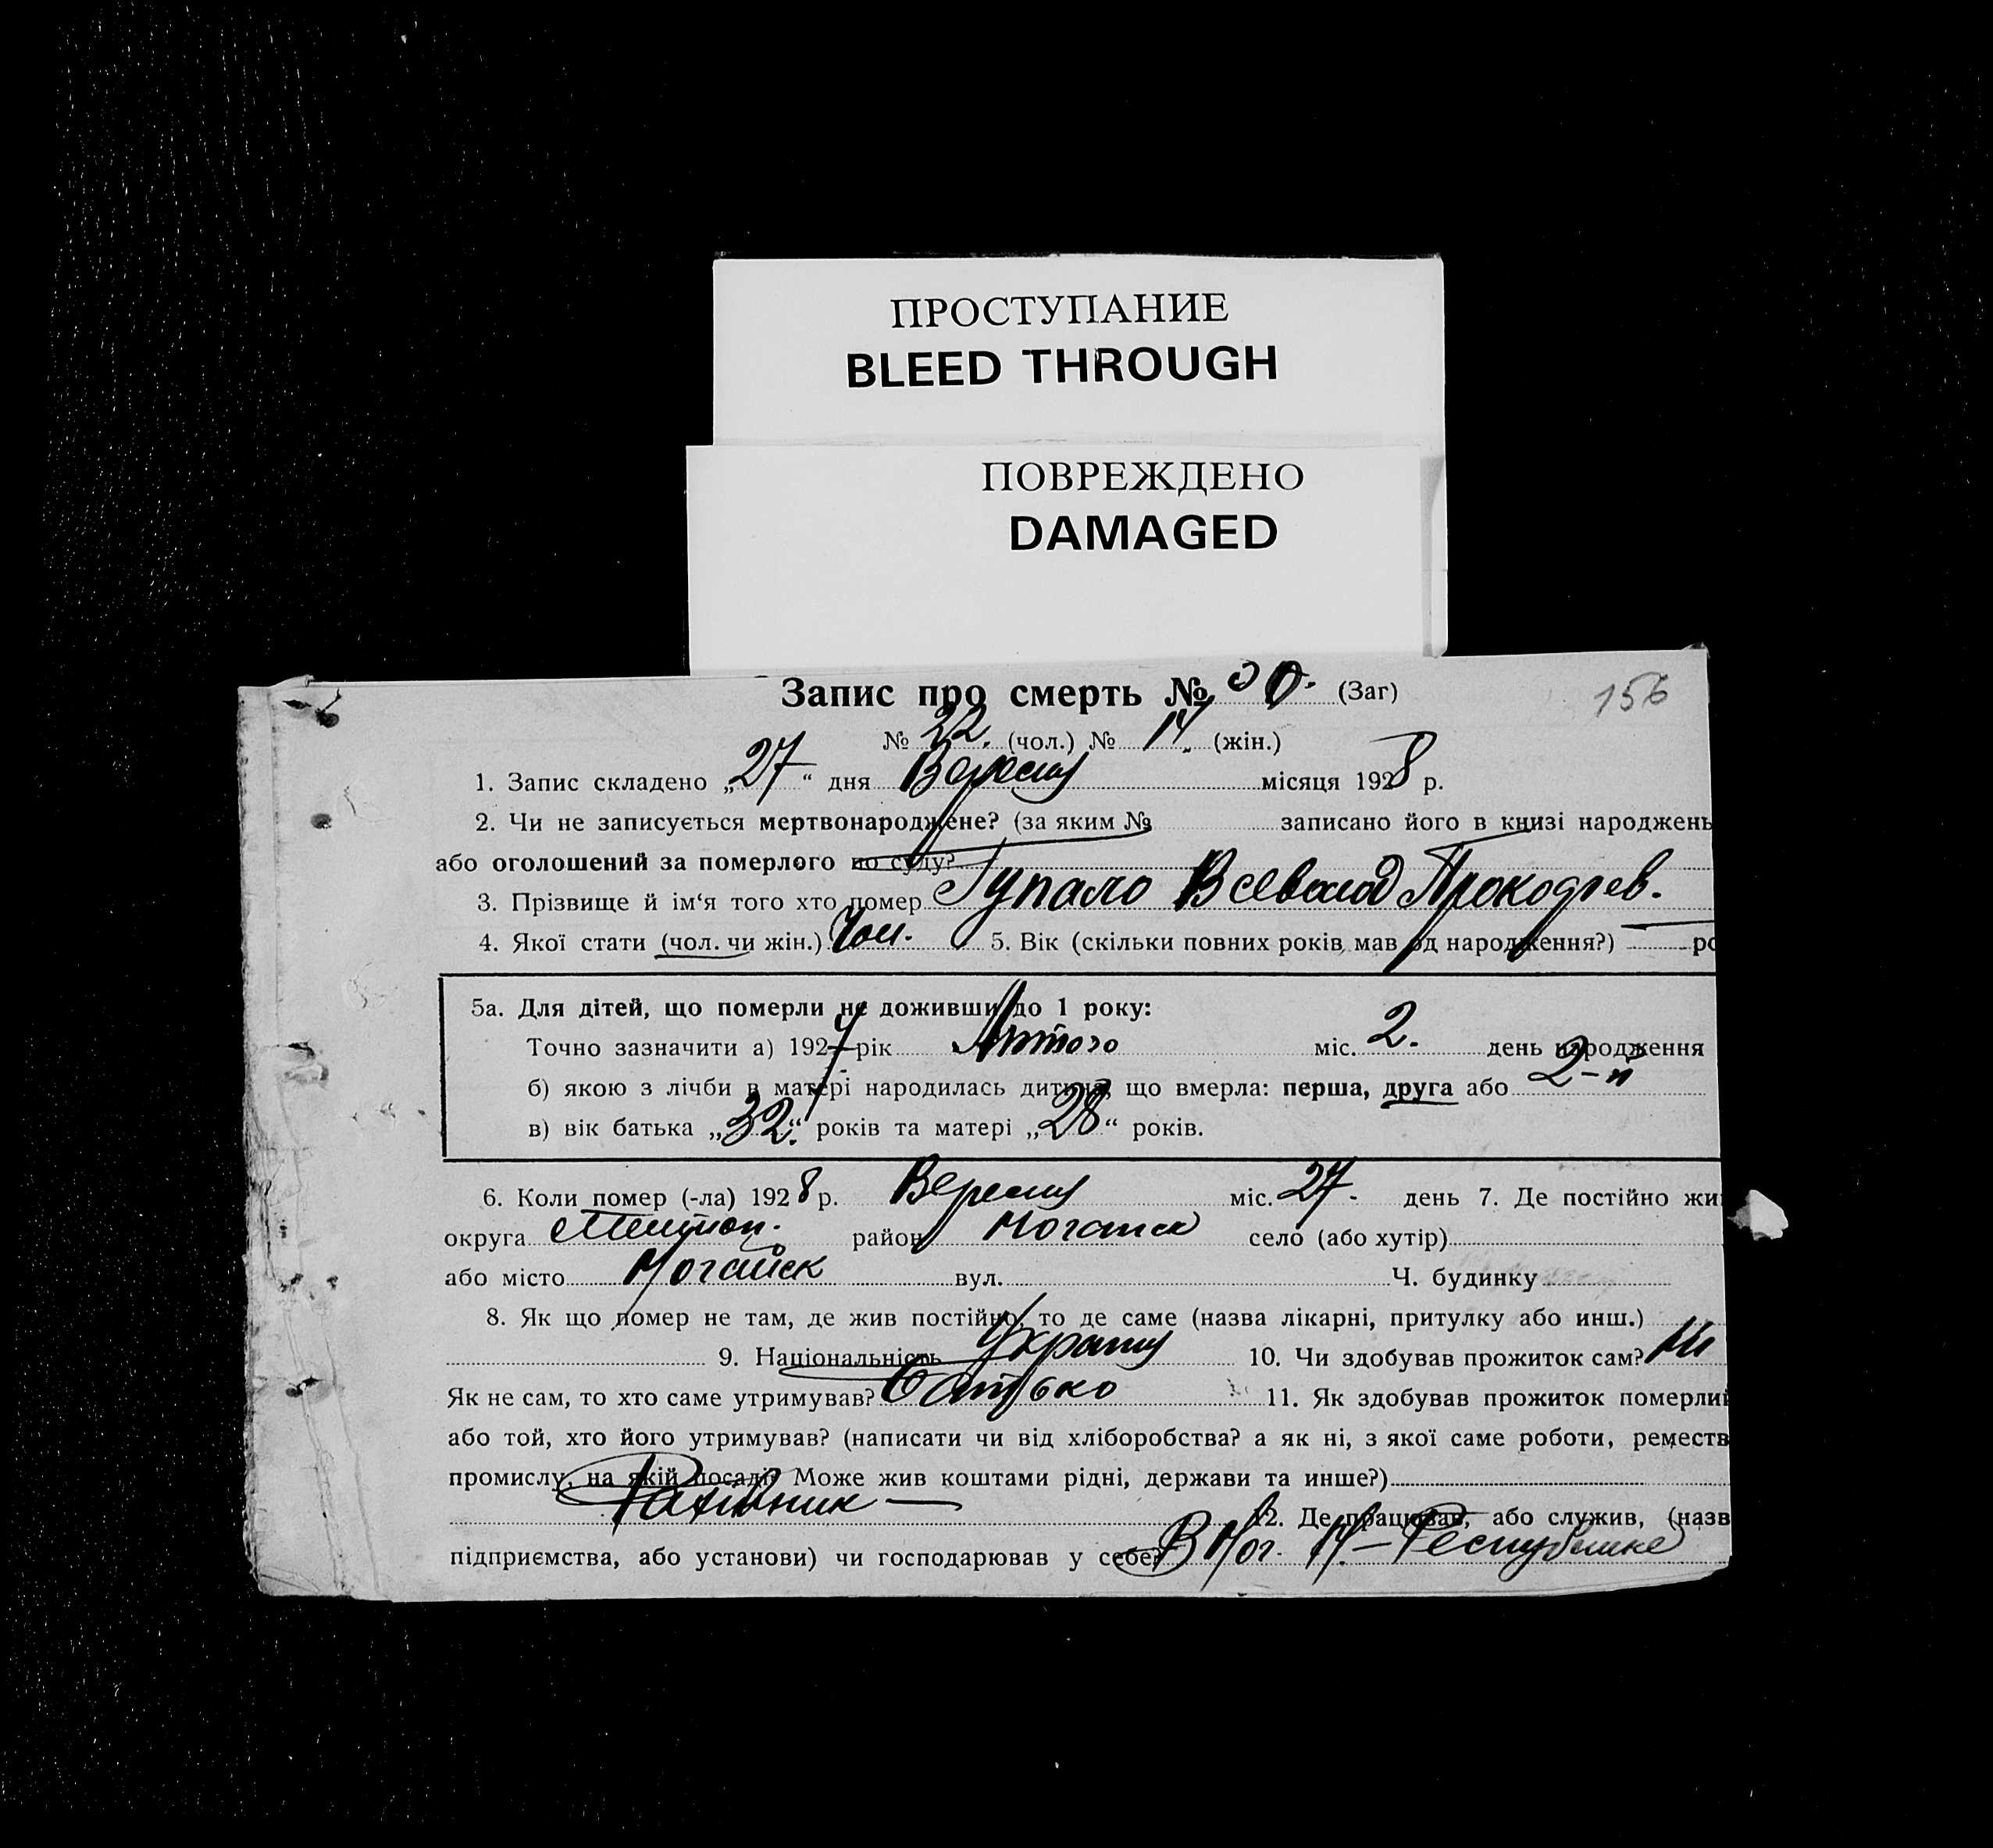 ПРОСТУПАНИЕ
BLEED THROUGH
ПОВРЕЖДЕНО
DAMAGED
Запис про смерть № (Заг) 156
№ 22. (чол.) № 14. (жін.)
1. Запис складено „27“ дня Вересня місяця 1928 р.
2. Чи не записується мертвонароджене? (за яким № записано його в книзі народжень
або оголошений за померлого по суду?
3. Прізвище й ім‘я того хто помер Гупало Всеволод Прокофіев.
4. Якої стати (чол. чи жін.) Чол. 5. Вік (скільки повних років мав од народження?) — ро
5а. Для дітей, що померли не доживши до 1 року:
Точно зазначити а) 192 рік Лютого міс. 2. день народження
б) якою з лічби в матері народилась дитина, що вмерла: перша, друга або 2-й
в) вік батька „32.“ років та матері „28“ років.
6. Коли помер (-ла) 1928 р. Вересня міс. 27. день 7. Де постійно жи
округа Мелітоп. район Ногайськ село (або хутір)
або місто Ногайск вул. Ч. будинку
8. Як що помер не там, де жив постійно, то де саме (назва лікарні, притулку або инш.)
9. Національність Україн 10. Чи здобував прожиток сам? Ні
Як не сам, то хто саме утримував? Батько 11. Як здобував прожиток померлий
або той, хто його утримував? (написати чи від хліборобства? а як ні, з якої саме роботи, реместв
промислу, на якій посаді? Може жив коштами рідні, держави та инше?)
Рахівник —
12. Де працював, або служив, (назв
підприємства, або установи) чи господарював у себе? В Ног.